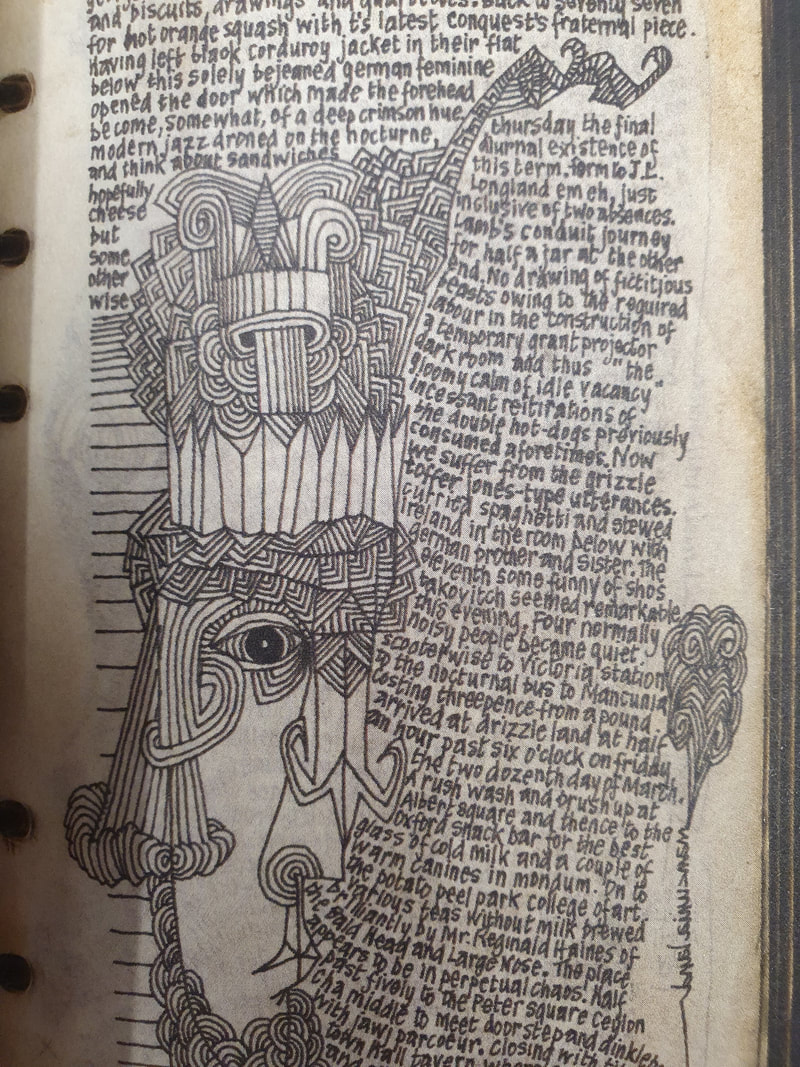 and biscuits, drawings and
for hot orange squash with t's latest conquest's fraternal piece.
Having left black corduroy jacket in their flat
below this solely bejeaned german feminine
opened the door which made the forehead
become, somewhat, of a deep crimson hue,
modern jazz droned on the nocturne,
and think about sandwiches
hopefully
cheese
but
some
other
wise
thursday the final
diurnal existence of
this term. form to J.L.
Longland em eh, just
inclusive of two absences.
Lamb's conduit journey
for half a jar at the other
end. No drawing of fictitious
beasts owing to the required
labour in the construction of
a temporary grant projector
dark room and thus "the
gloomy calm of idle vacancy"
incessant reitirations of
the double hot-dogs previously
consumed aforetimes. Now
we suffer from the grizzle
toffer jones-type utterances.
curried spaghetti and stewed
ireland in the room below with
german brother and sister. The
eleventh some funny of shos
takovitch seemed remarkable
this evening. Four normally
noisy people became quiet.
scooterwise to Victoria station
to the nocturnal bus to Mancunia
costing threepence from a pound.
arrived at drizzle land at half
an hour past six o'clock on friday,
the two dozenth day of March.
A rush wash and brush up at
Albert square and thence to the
Oxford snack bar for the best
glass of cold milk and a couple of
warm canines in mondum. On to
the potato peel park college of art,
various teas without milk brewed
brilliantly by Mr. Reginald Haines of
the Bald Head and Large Nose. The place
appears to be in perpetual chaos. Half
past, fively to the Peter square Ceylon
cha middle to meet doorstep and dinkles
with jawj parcoeur. Closing with
town hall tavern
and